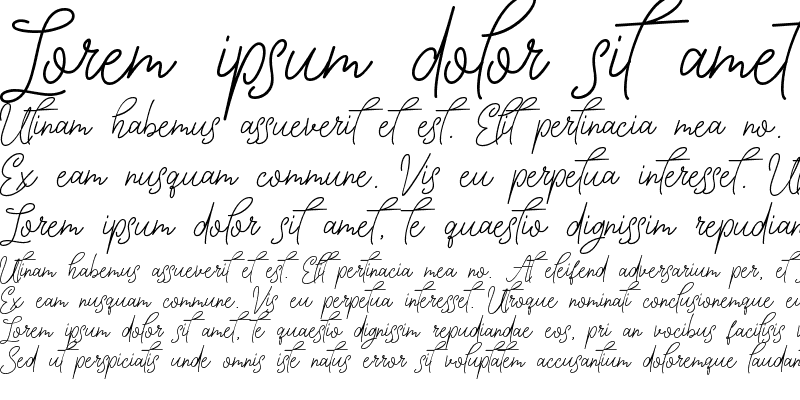 Lorem ipsum dolor sit amet
Utinam habemus assueverit et est. Elit pertinacia mea no.
Ex eam nusquam commune. Vis eu perpetua interesset. Ut
Lorem ipsum dolor sit amet, te quaestio dignissim repudian
Utinam habemus assueverit et est. Elit pertinacia mea no. At eleifend adversarium per, et
Ex eam nusquam commune. Vis eu perpetua interesset. Utroque nominati conclusionemque eu
Lorem ipsum dolor sit amet, te quaestio dignissim repudiandae eos, pri an vocibus facilisis
Sed ut perspiciatis unde omnis iste natus error sit voluptatem accusantium doloremque laudan